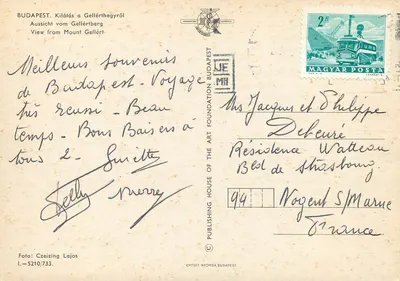 BUDAPEST. Kilátás a Gellérthegyről
Aussicht vom Gellértberg
View from Mount Gellért
Meilleurs souvenirs
de Budapest - Voyage
très réussi - Beau
temps - Bons Baisers à
tous 2 - Ginette
PUBLISHING HOUSE OF THE ART FOUNDATION, BUDAPEST
2 Ft
MAGYAR POSTA
Mrs Jacques et Philippe
Résidence Watteau
Bld de Strasbourg
94 Nogent S/Marne
France
Foto: Czeizing Lajos
I.—5210/733.
OFFSET NYOMDA, BUDAPEST